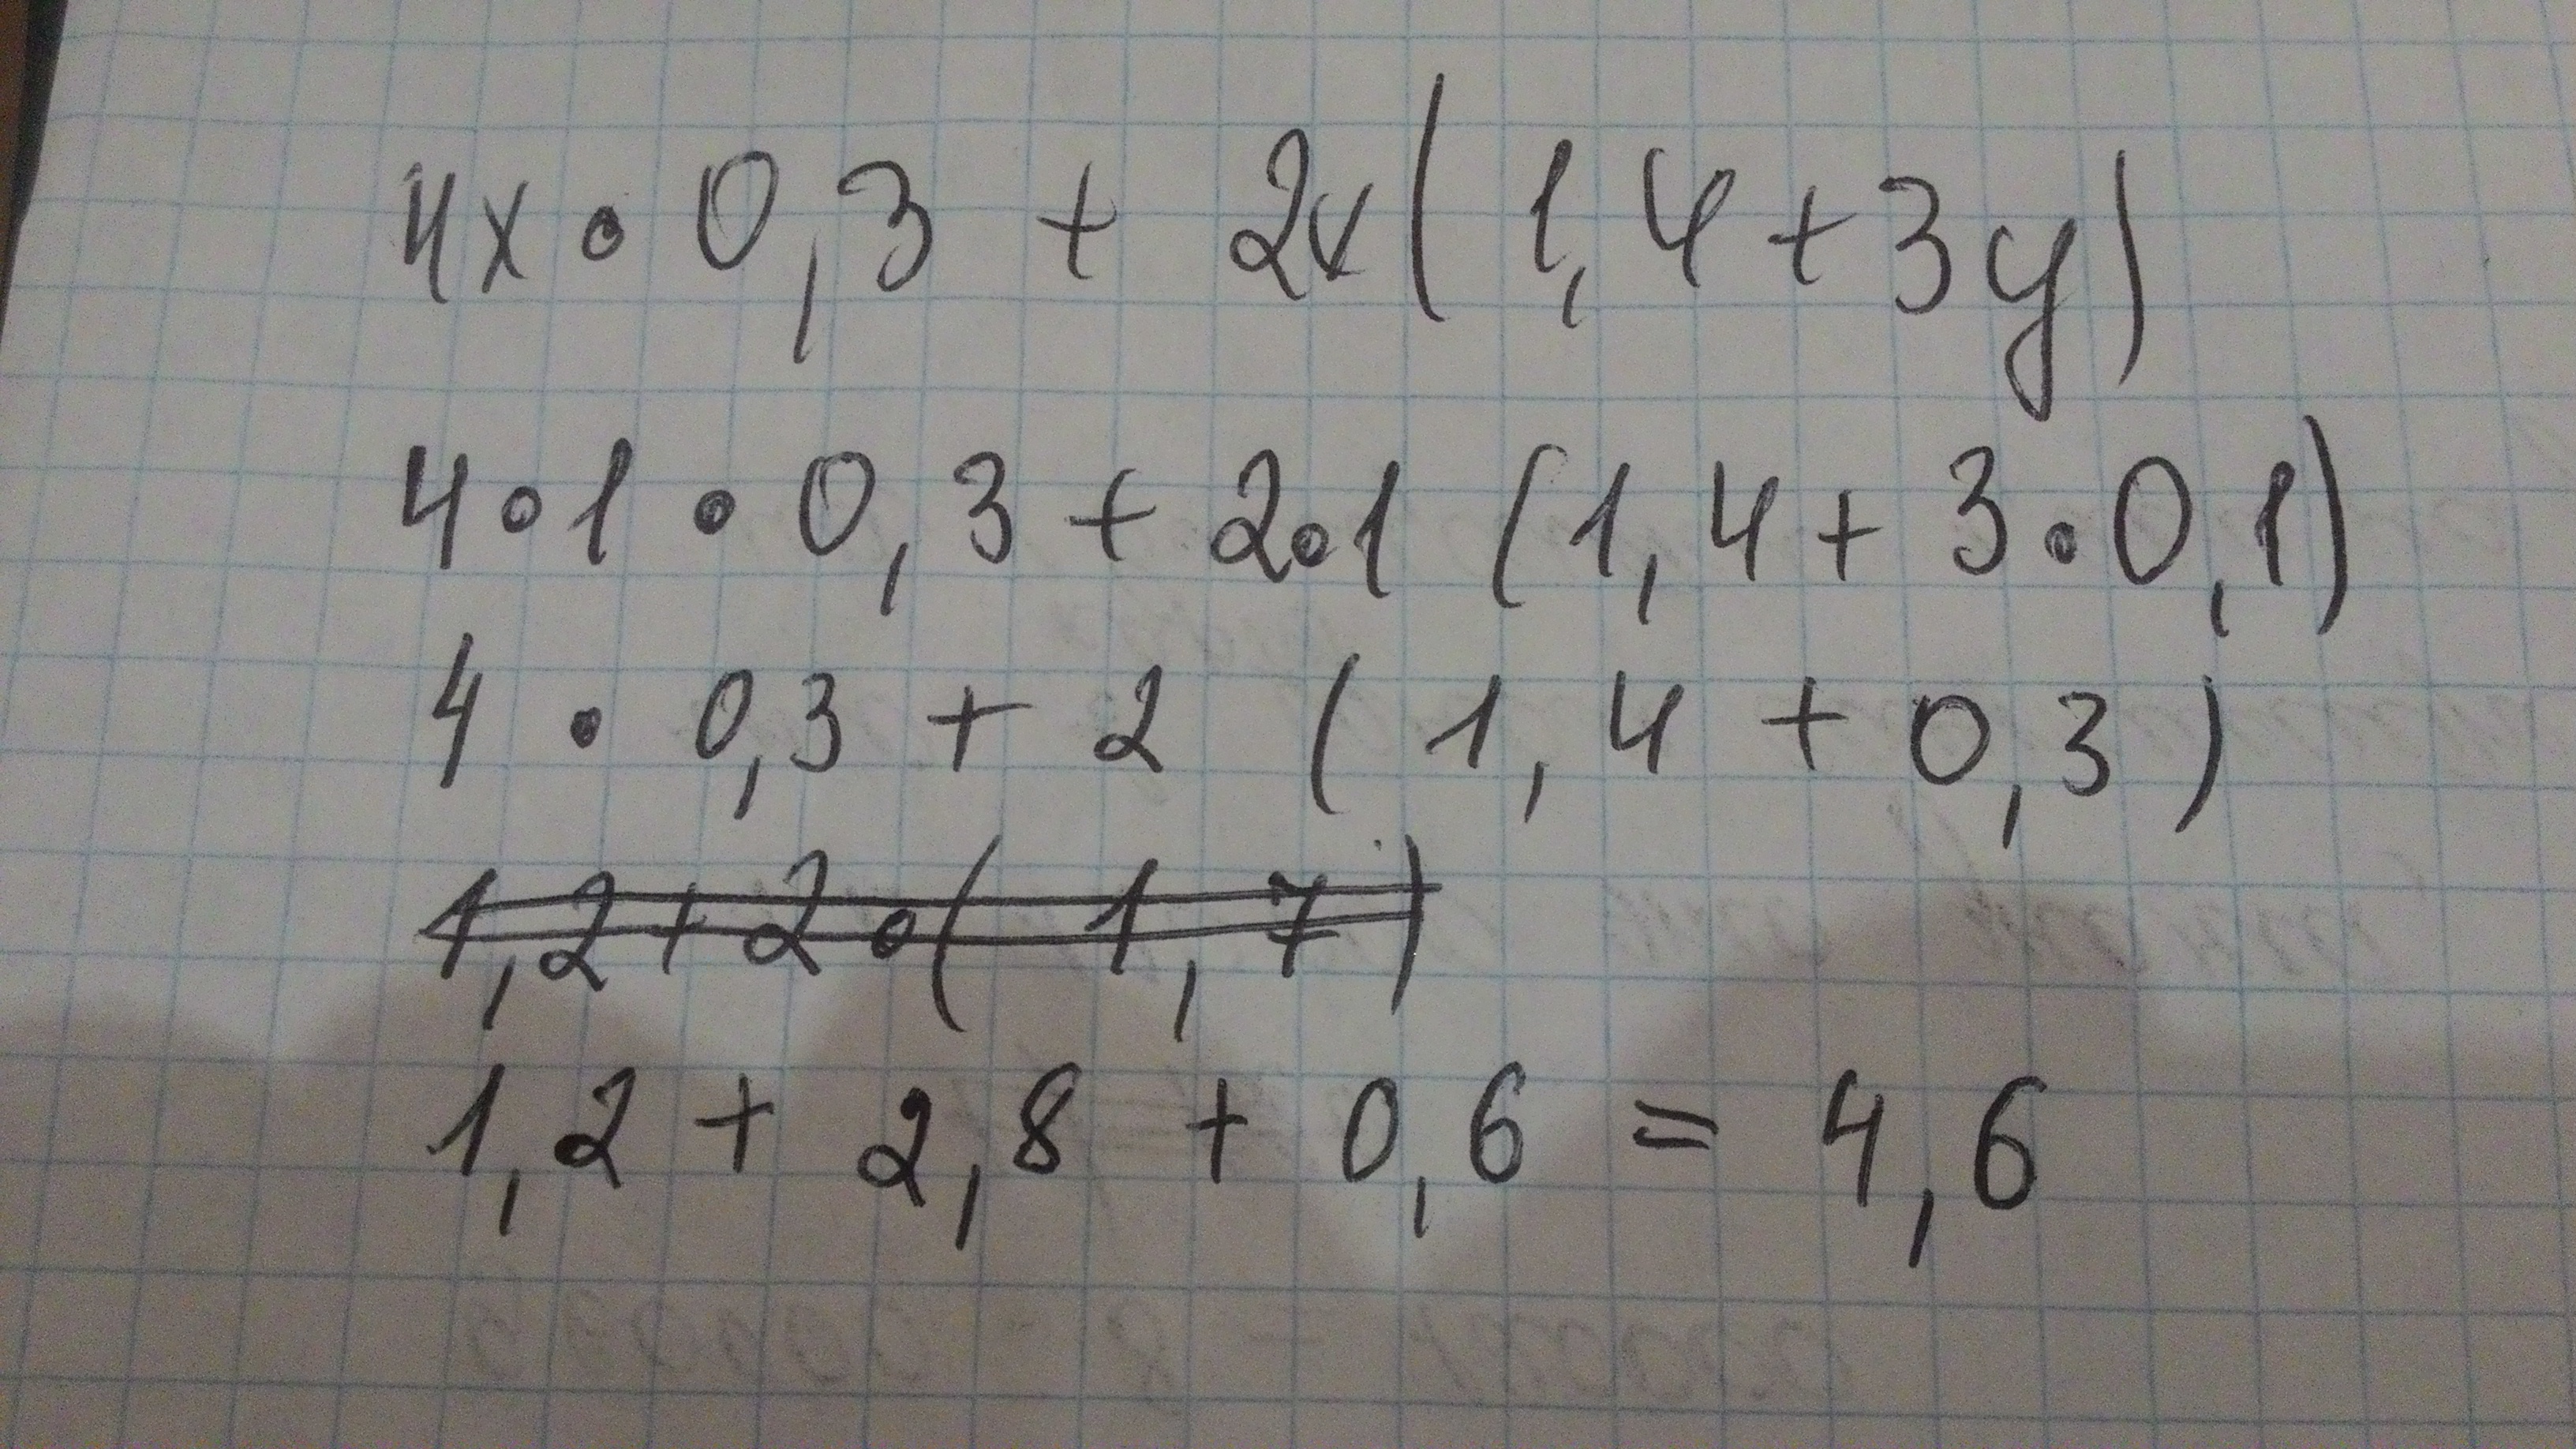 4x • 0,3 + 2x(1,4+3y)
4•1 • 0,3 + 2•1 (1,4+ 3•0,1)
4 • 0,3 + 2 (1,4 + 0,3)
1,2+2•(1,7)
1,2 + 2,8 + 0,6 = 4,6